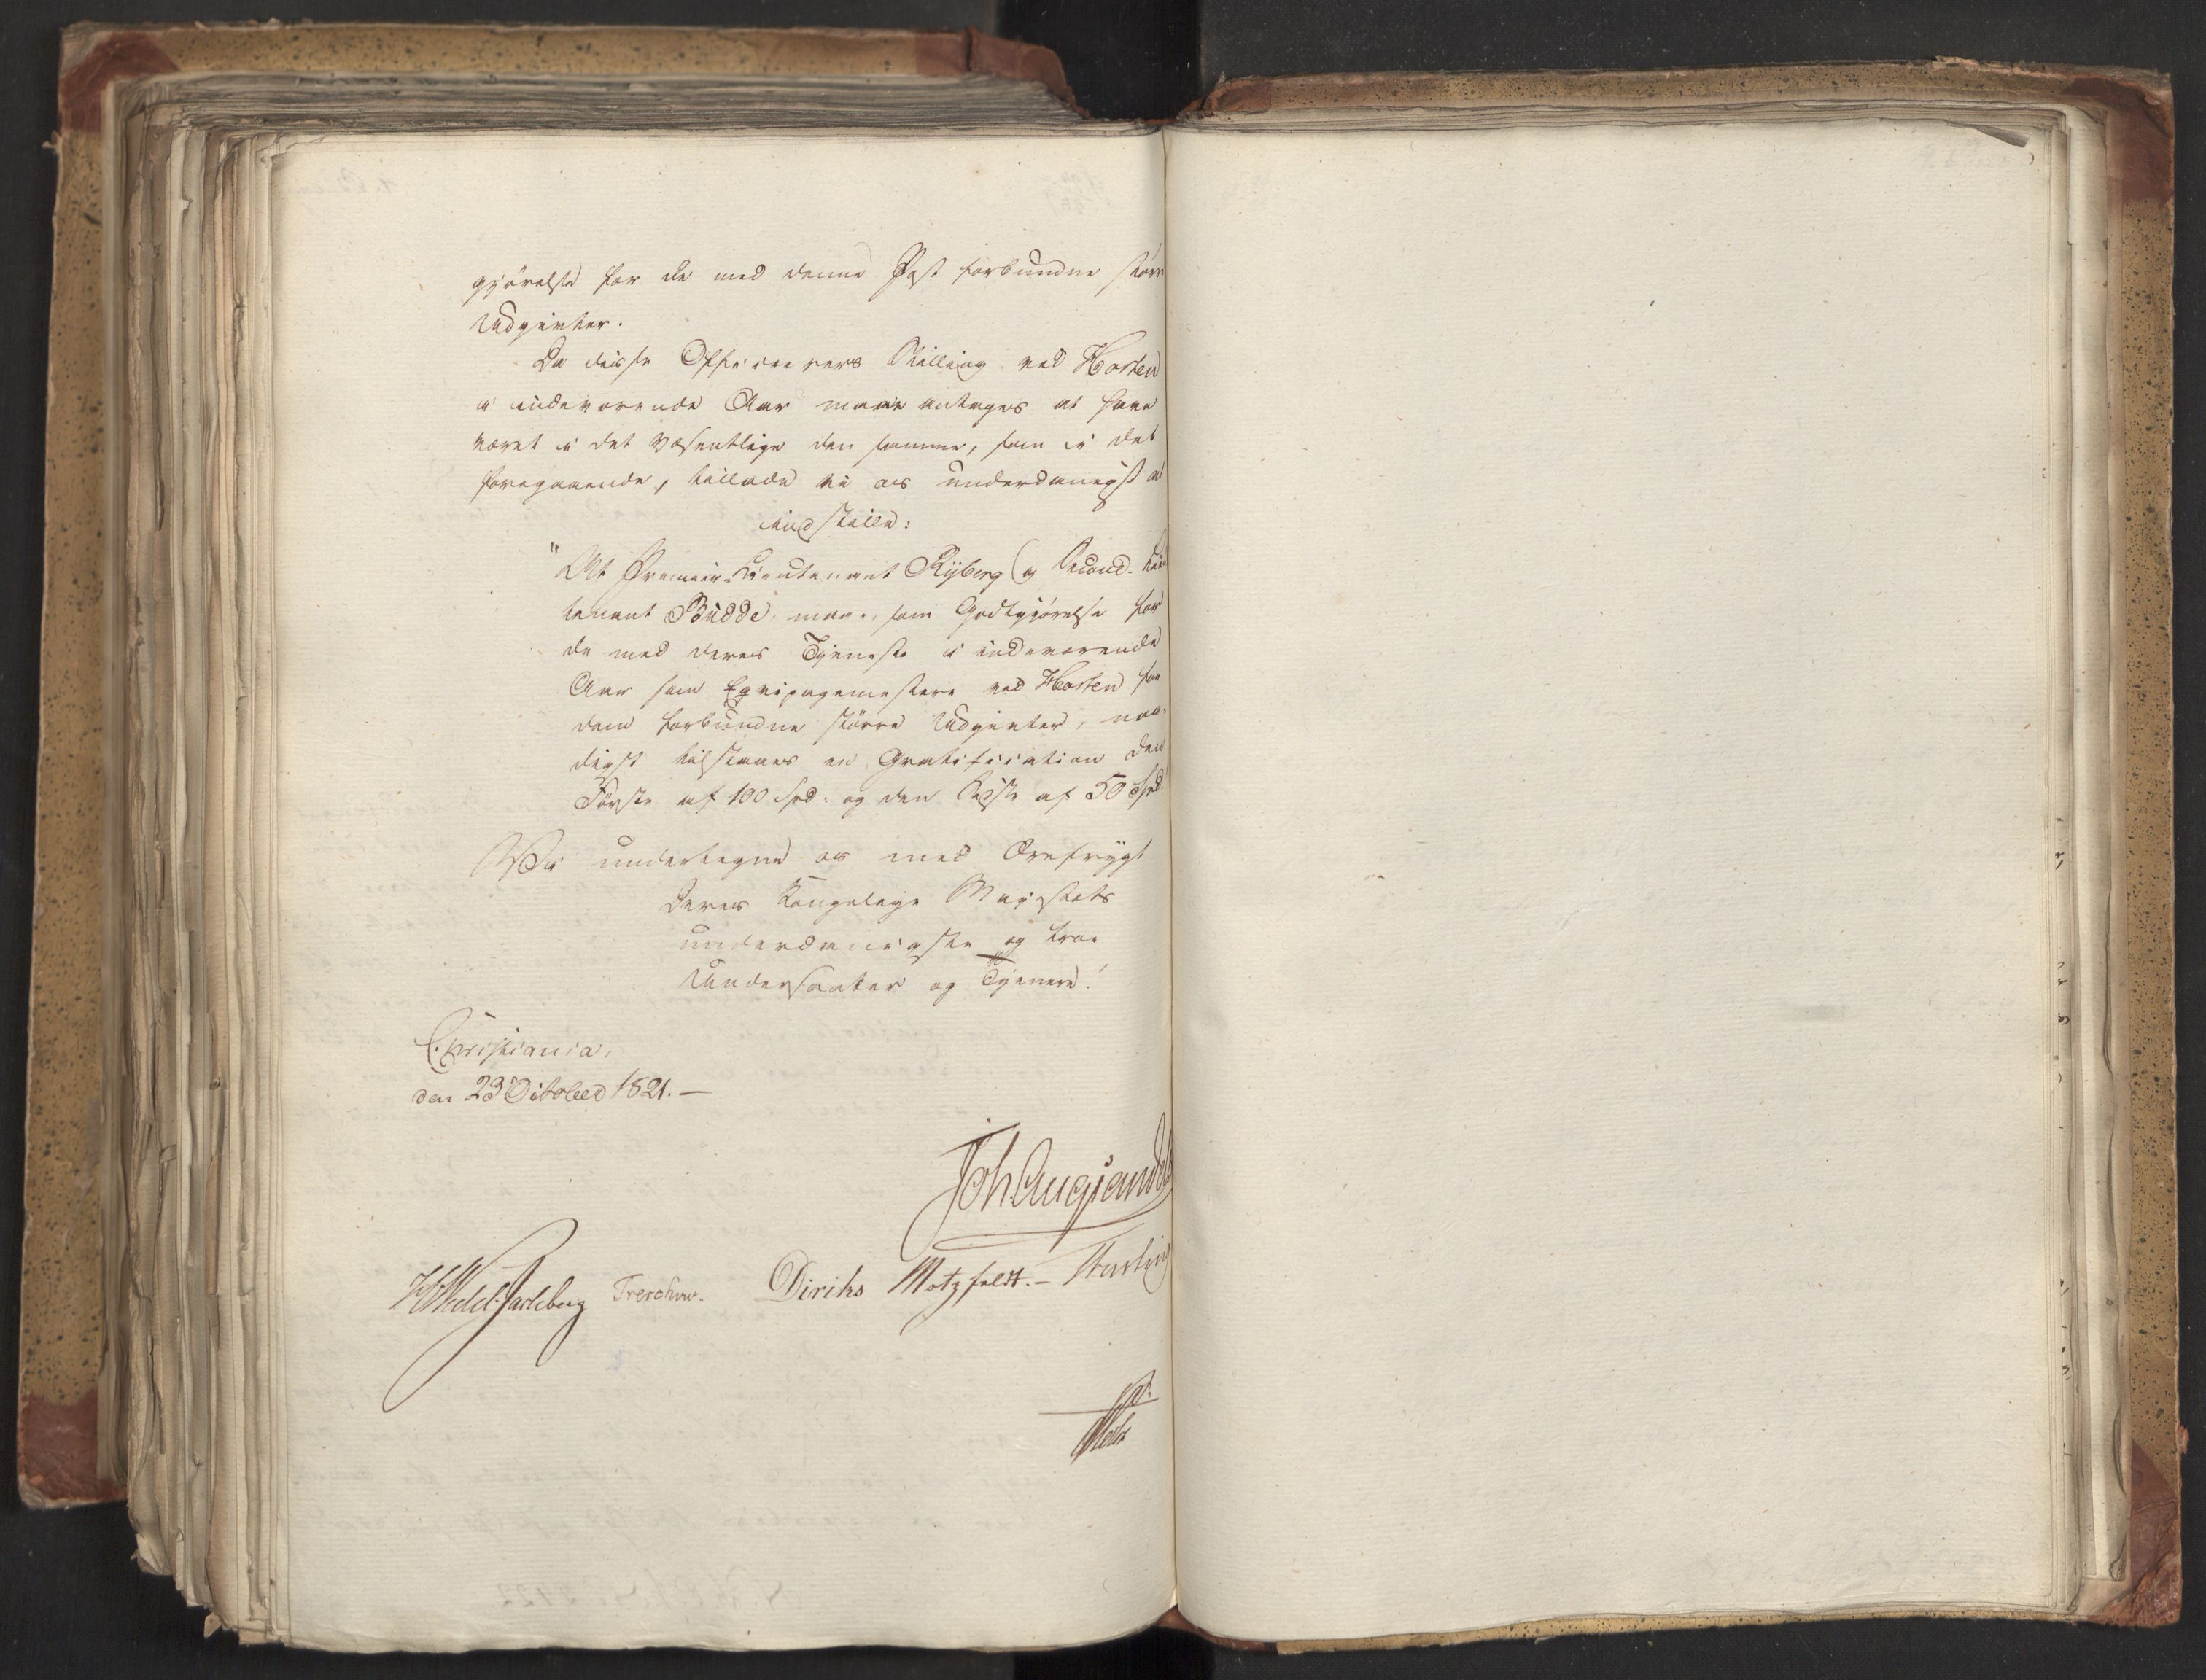 gjörelse for de med denne Post forbundne större
Udgivter.
Da disse Officierers Stilling ved Horten
i indeværende Aar maae antages at have
været i det Væsentlige den samme, som i det
foregaaende, tillade vi os underdanigst at
indstille:
"At Premier-Lieutenant Ryberg og Second-Lieu
tenant Budde, maae, som Godtgjörelse for
de med deres Tjeneste i indeværende
Aar som Eqvipagemestere ved Horten for
dem forbundne större Udgivter, naa-
digst tilstaaes en Gratification den
Förste af 100 Spd: og den Sidste af 50 Spd."
Vi undertegne os med Ærefrygt
Deres Kongelige Majestæts
underdanigste og troe
Undersaatter og Tjenere!
Christiania,
den 23 October 1821.—
Joh Aug Sandels
HWedel Jarlsberg Treschow. Diriks Motzfeldt.—